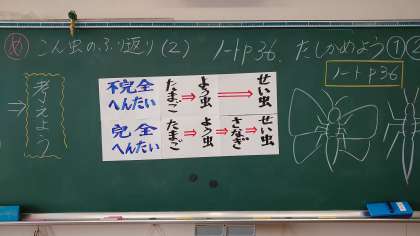 め こん虫のふり返り(2) ノートp36. たしかめよう①②
ノートp36
⇒ 考えよう
不完全へんたい たまご⇒よう虫⇒せい虫
完全へんたい たまご⇒よう虫⇒さなぎ⇒せい虫